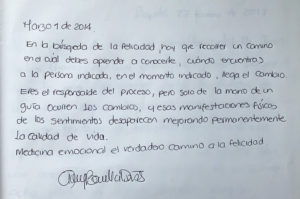 Marzo 1 de 2014.
En la búsqueda de la felicidad, hay que recorrer un camino
en el cual debes aprender a conocerte, cuando encuentras
a la persona indicada, en el momento indicado, llega el cambio.
Eres el responsable del proceso, pero solo de la mano de un
guía ocurren los cambios, y esas manifestaciones físicas
de los sentimientos desaparecen mejorando permanentemente
la calidad de vida.
Medicina emocional el verdadero camino a la felicidad